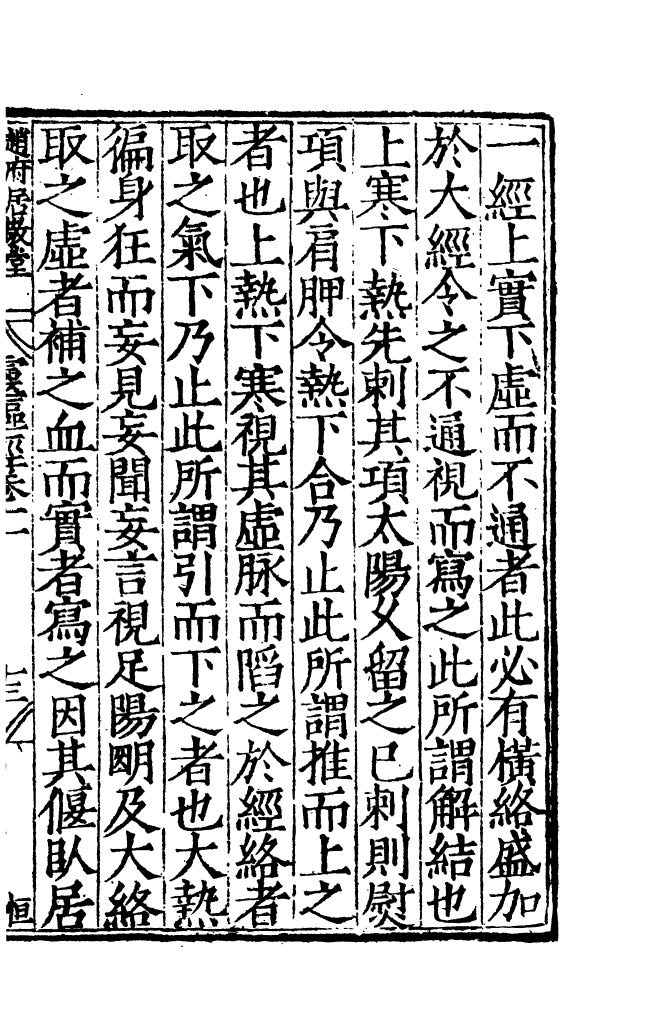 一經上實下虛而不通者此必有橫絡盛加
於大經令之不通視而寫之此所謂解結也
上寒下熱先刺其項太陽乆留之已刺則熨
項與肩胛令熱下合乃止此所謂推而上之
者也上熱下寒視其虛脉而䧟之於經絡者
取之氣下乃止此所謂引而下之者也大熱
徧身狂而妄見妄聞妄言視足陽明及大絡
取之虛者補之血而實者寫之因其偃臥居
趙府居敬堂 靈樞經卷二 十三 恒